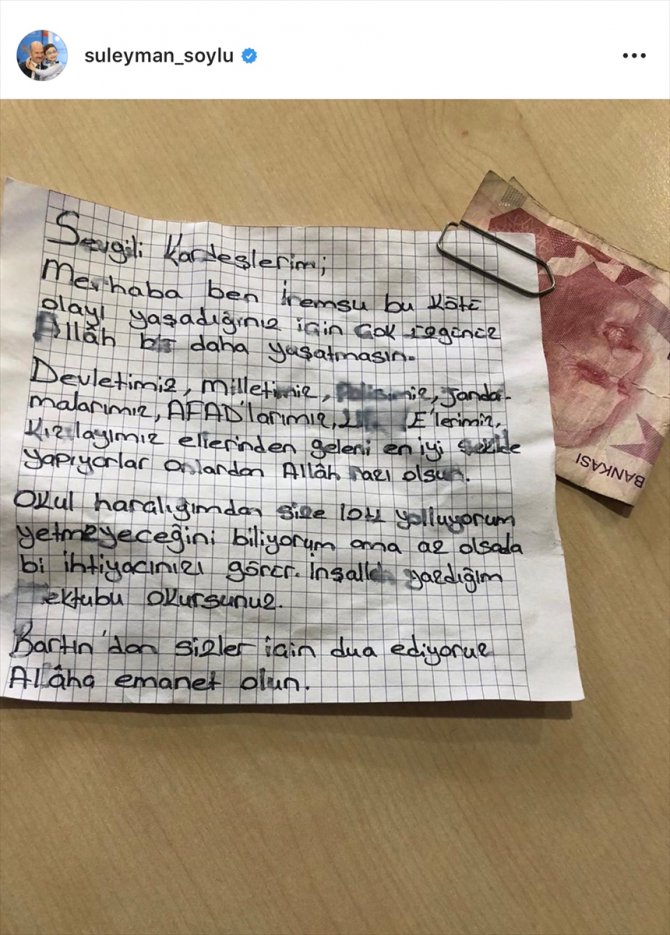 suleyman_soylu
Sevgili Kardeşlerim;
Merhaba ben İremsu bu kötü
olayı yaşadığınız için çok
Allâh bir daha yaşatmasın.
Devletimiz, milletimiz, Polisimiz, Janda-
malarımız, AFAD'larımız, E'lerimiz,
Kızılayımız ellerinden geleni en iyi şekilde
yapıyorlar onlardan Allâh razı olsun.
Okul haralığımdan size 10TL yolluyorum
yetmeyeceğini biliyorum ama az olsada
bi ihtiyacınızı görür. İnşallah yazdığım
mektubu okursunuz.
Bartın'dan sizler için dua ediyoruz
Allâha emanet olun.
BANKASI